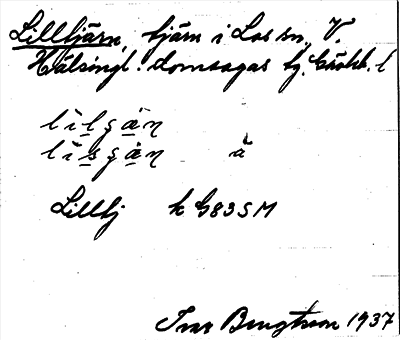 Lilltjärn, tjärn i Los sn, V.
Hälsingl. domsagas tj.
lilşän
lisşän ä
Lilltj k G83SM
Ivar Bengtsson 1937